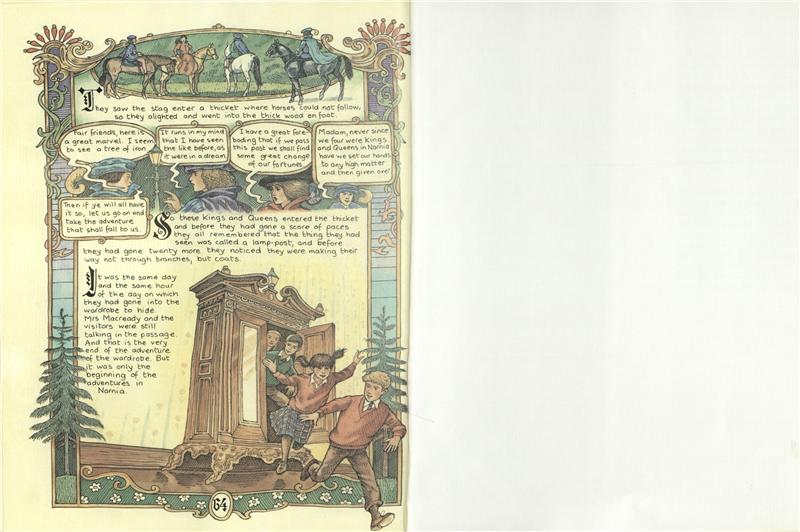 They saw the stag enter a thicket where horses could not follow,
so they alighted and went into the thick wood on foot.
Fair friends, here is
a great marvel. I seem
to see a tree of iron
It runs in my mind
that I have seen
the like before, as
it were in a dream
I have a great fore-
boding that if we pass
this post we shall find
some great change
of our fortunes
Madam, never since
we four were Kings
and Queens in Narnia
have we set our hands
to any high matter
and then given over
Then if ye will all have
it so, let us go on and
take the adventure
that shall fall to us.
So these Kings and Queens entered the thicket
and before they had gone a score of paces
they all remembered that the thing they had
seen was called a lamp-post, and before
they had gone twenty more they noticed they were making their
way not through branches, but coats.
It was the same day
and the same hour
of the day on which
they had gone into the
wardrobe to hide.
Mrs Macready and the
visitors were still
talking in the passage.
And that is the very
end of the adventure
of the wardrobe. But
it was only the
beginning of the
adventures in
Narnia.
64